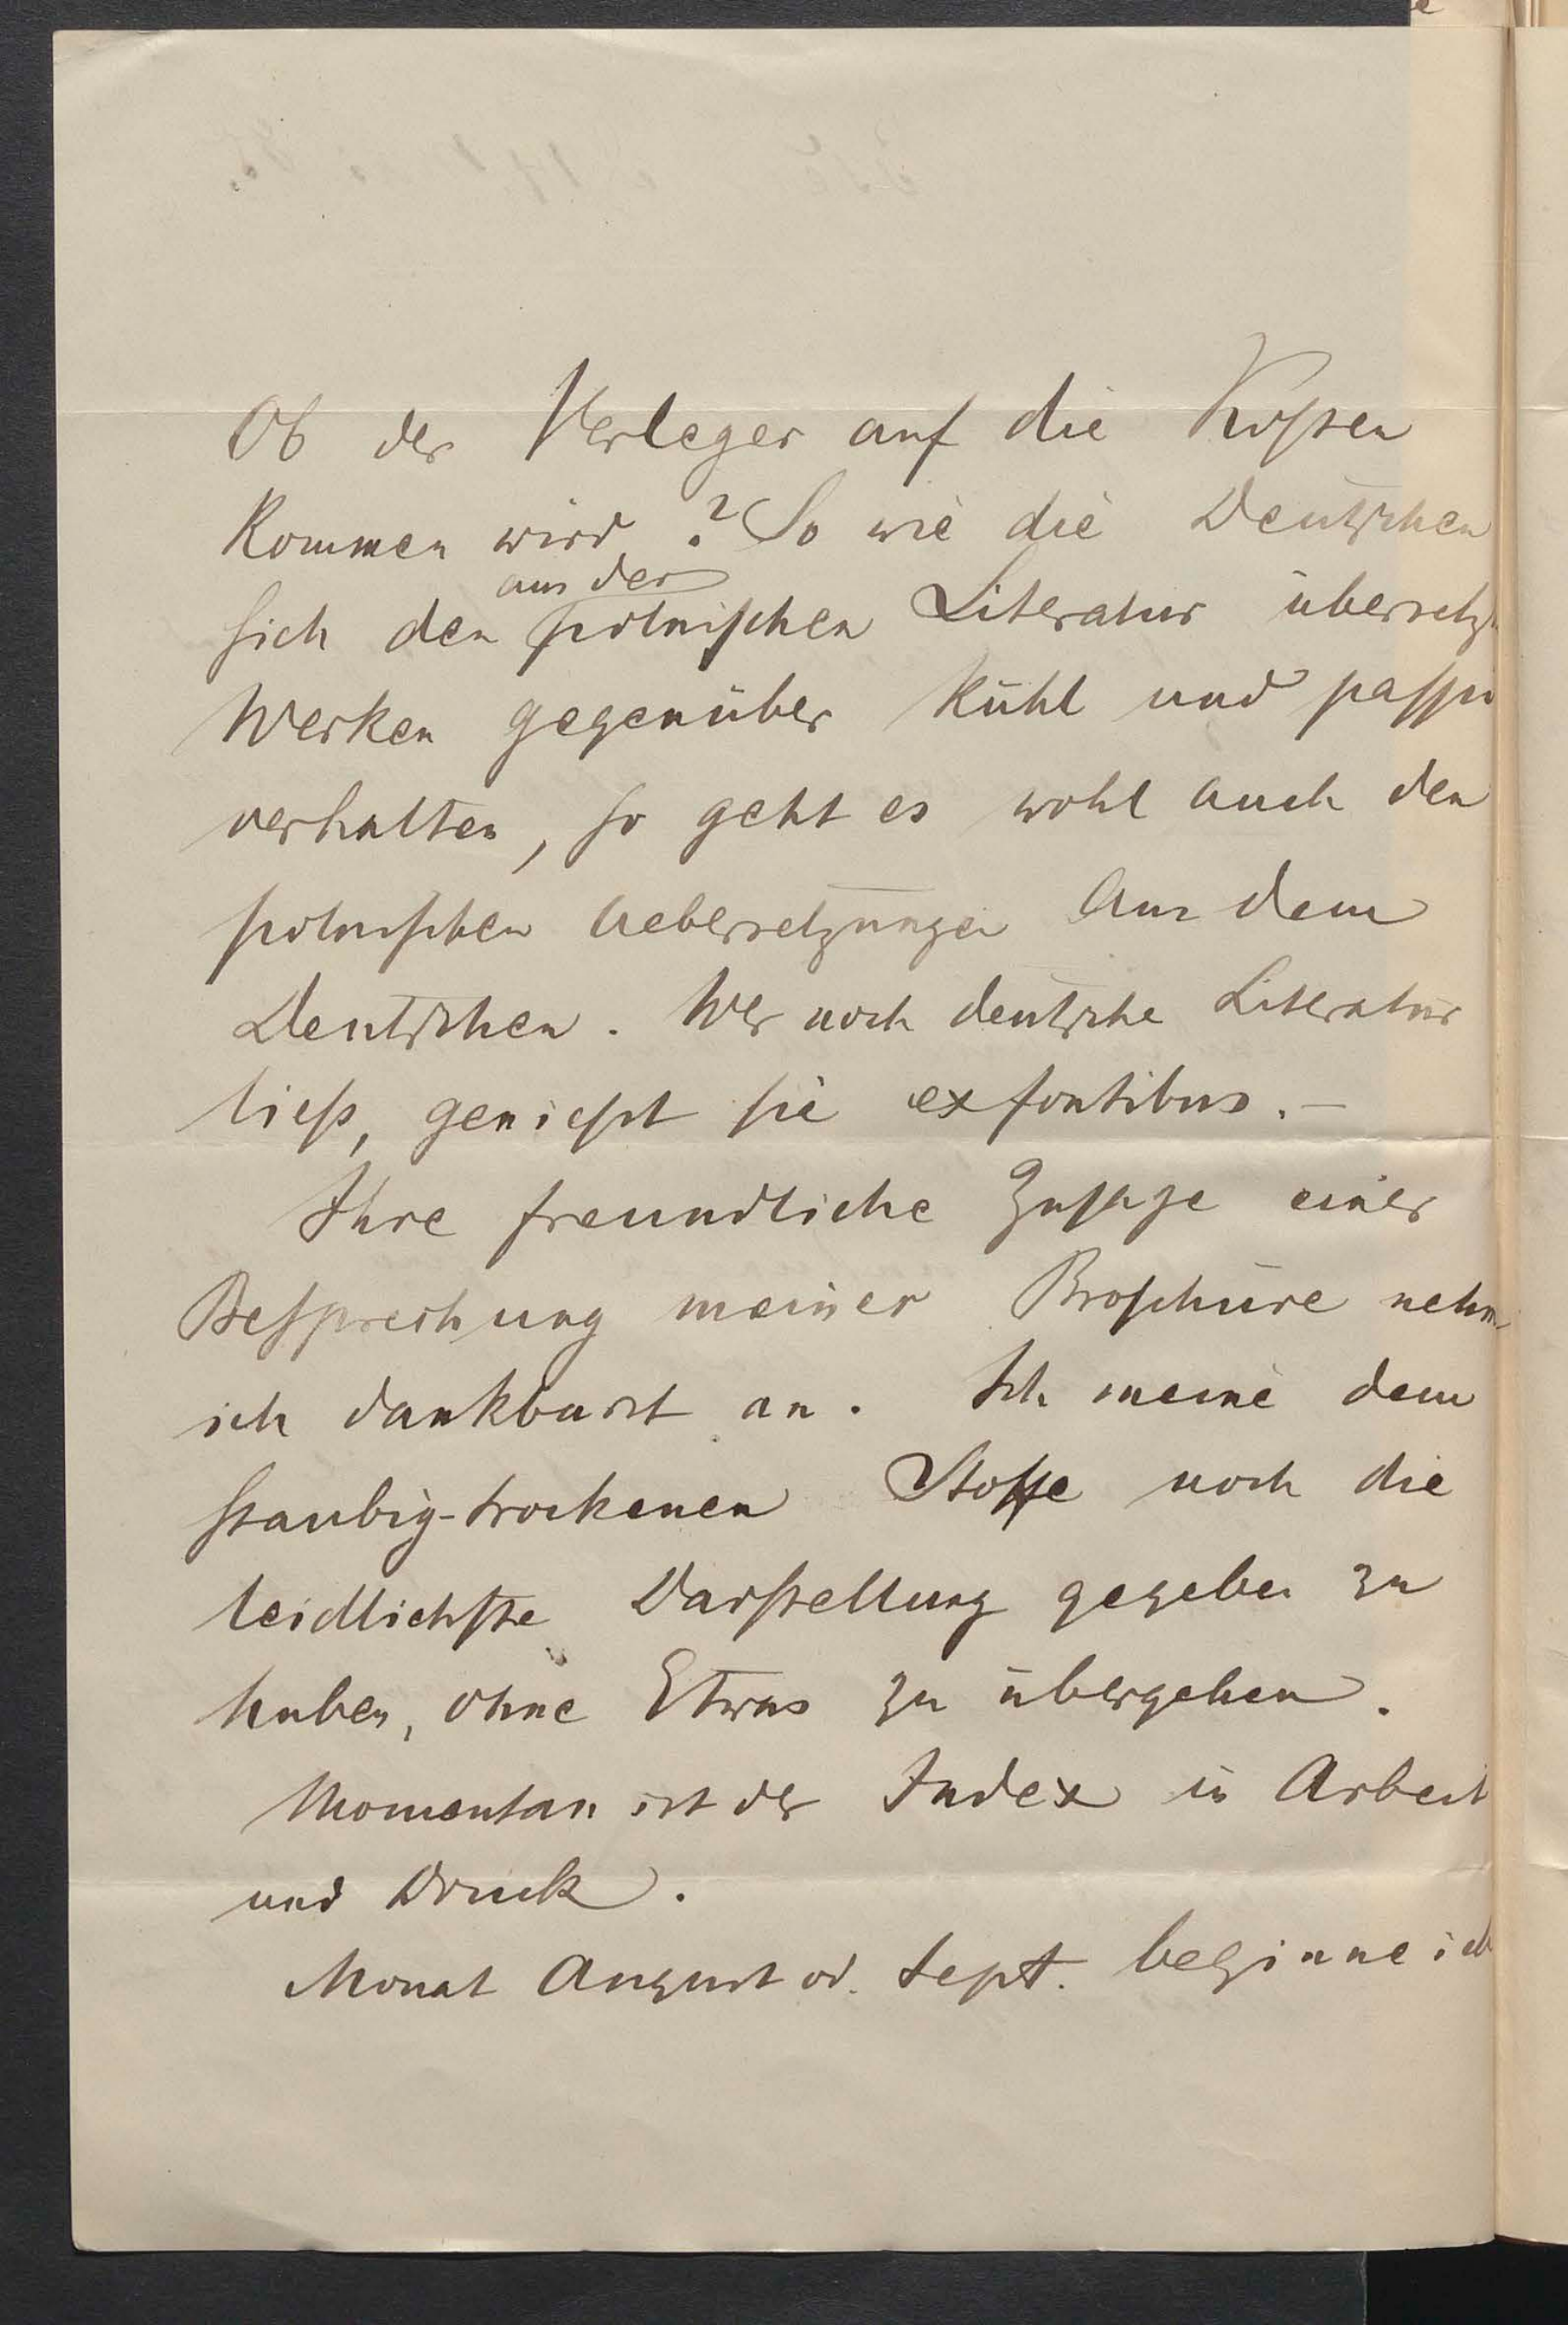 Ob der Verleger auf die Kosten
kommen wird? So wie die Deutschen
aus der
sich den polnischen Literatur übersetzt
Werken gegenüber kühl und passiv
verhalten, so geht es wohl auch den
polnischen Uebersetzungen aus dem
Deutschen. Wer noch deutsche Literatur
ließt, genießt sie ex fontibus. –
Ihre freundliche Zusage einer
Besprechung meiner Broschüre nehm
ich dankbarst an. Ich meine dem
staubig-trockenen Stoffe noch die
leidlichste Darstellung gegeben zu
haben, ohne Etwas zu übergehen.
Momentan ist der Index in Arbeit
und Druck.
Monat August od. Sept. beginne ich